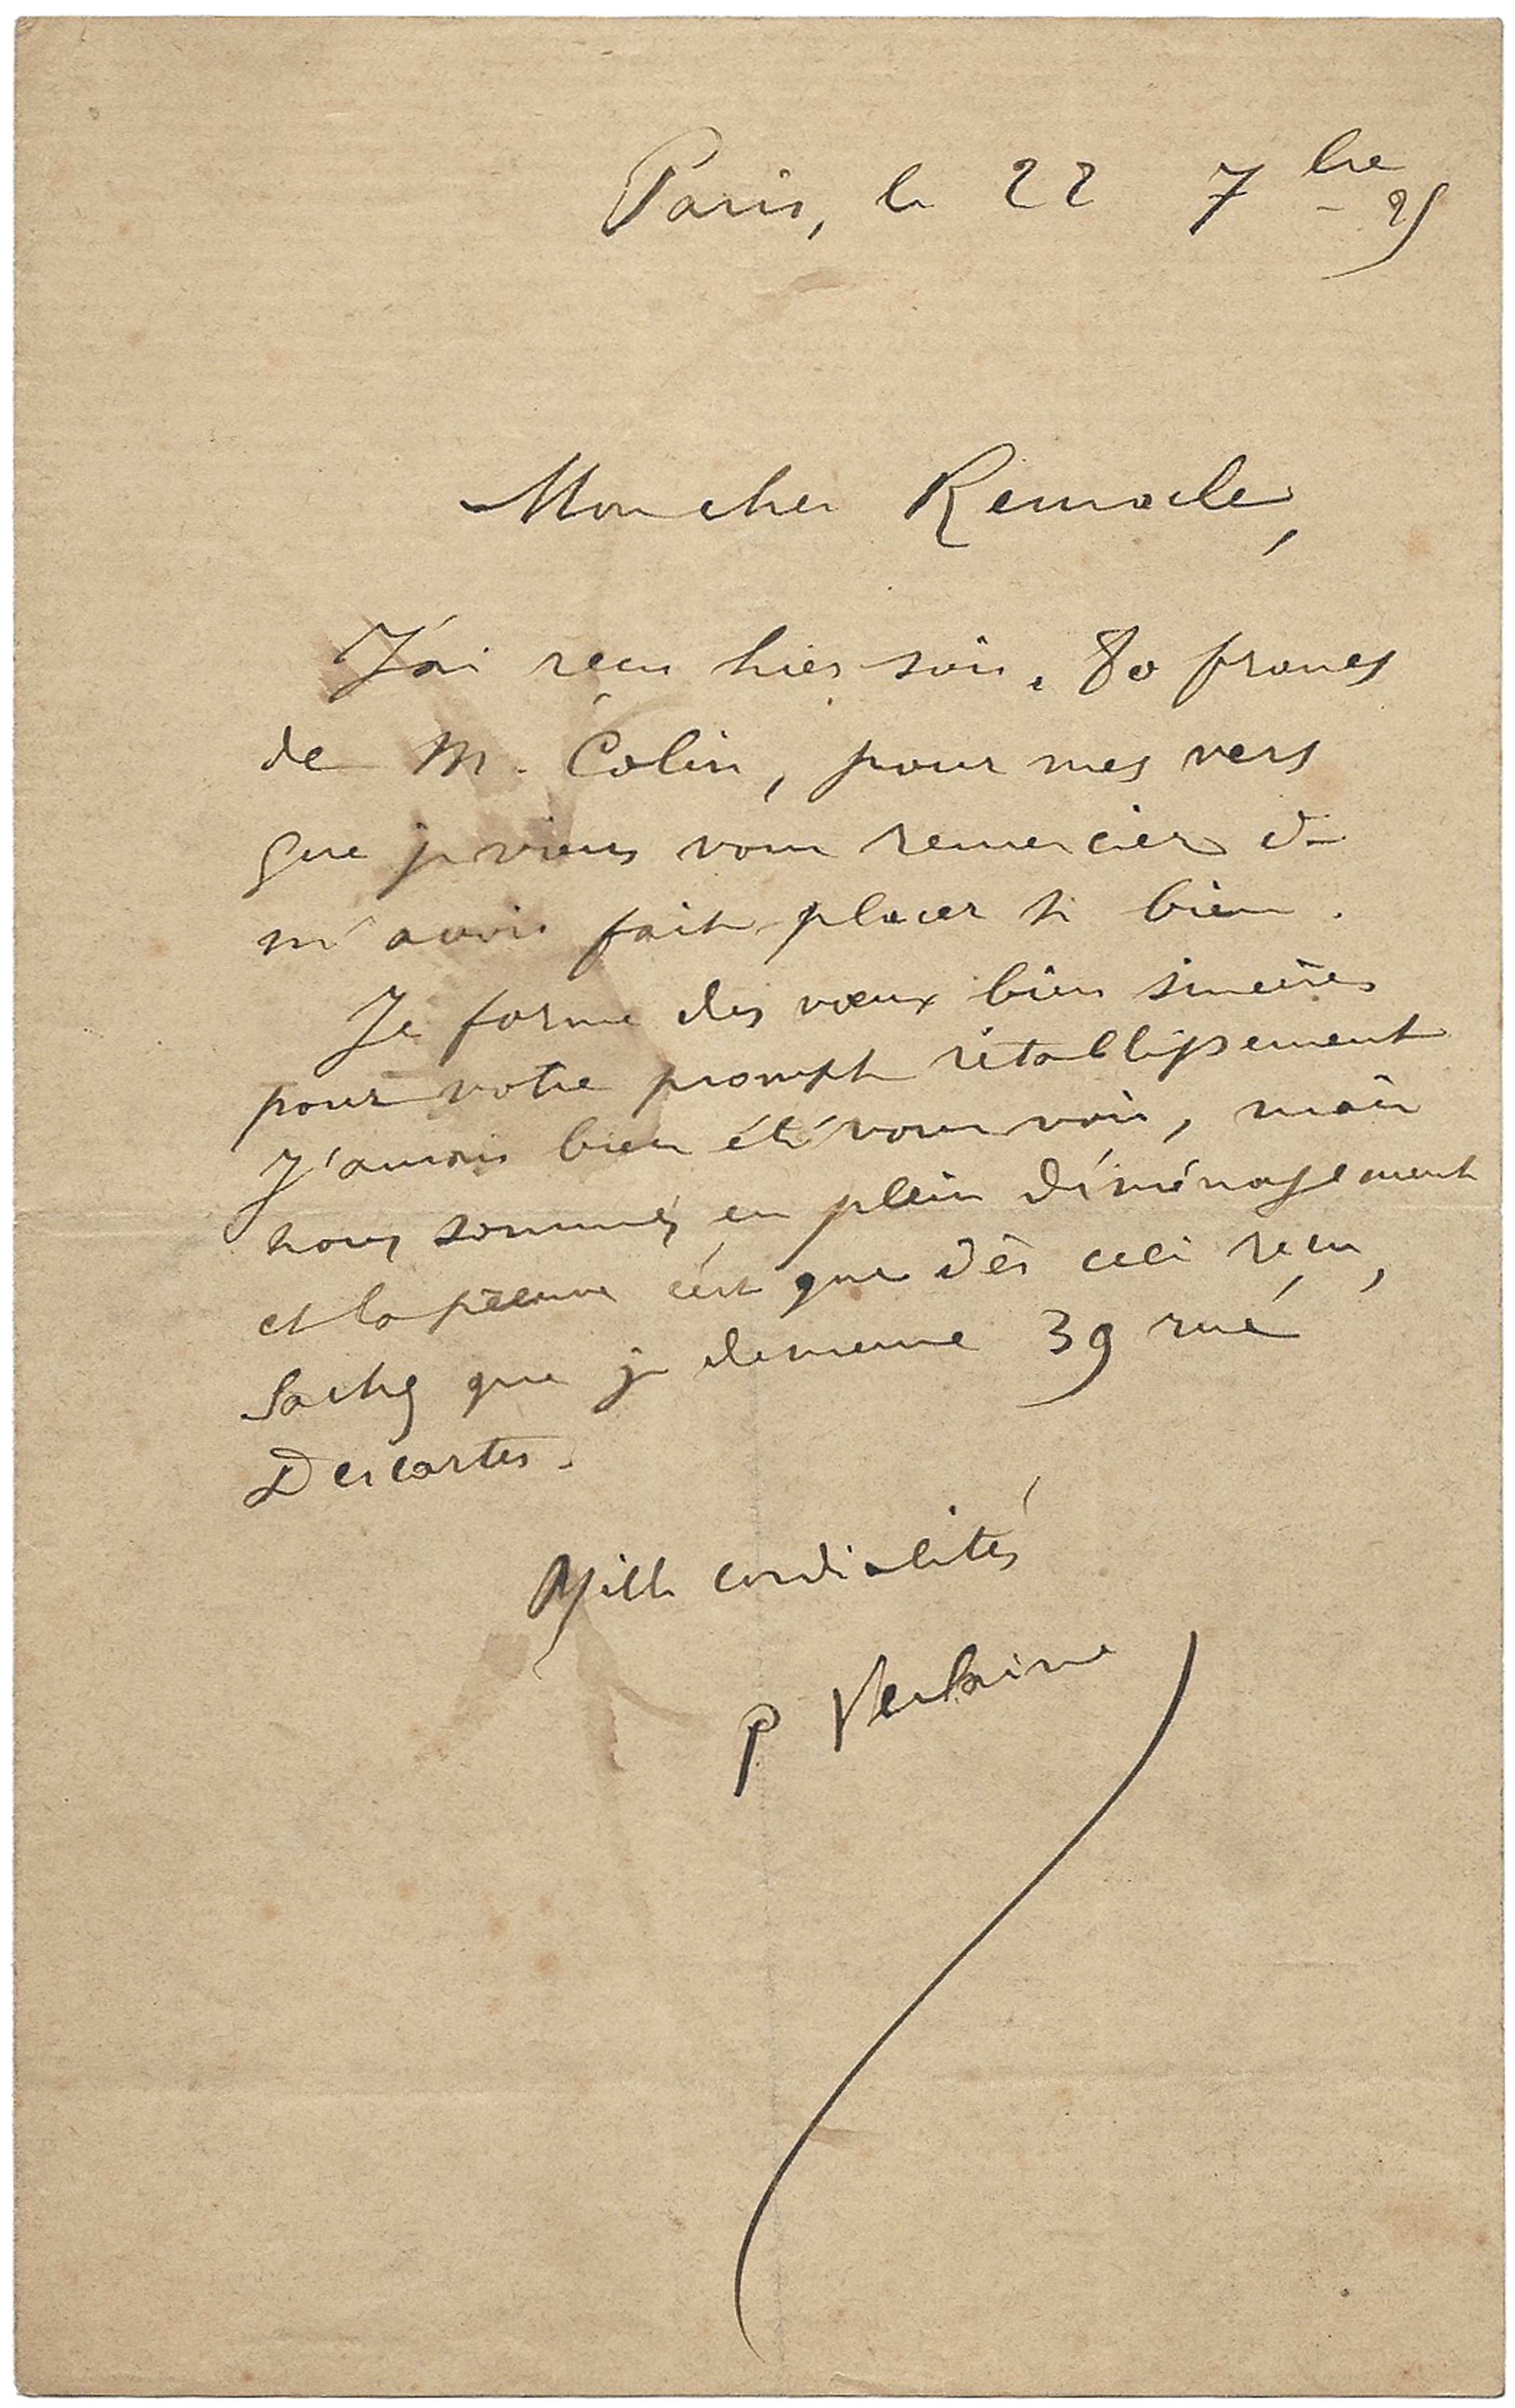 Paris, le 22 7bre 95
Mon cher Remacle,
J'ai reçu hier soir, 80 francs
de M. Colin, pour mes vers
que je viens vous remercier de
m'avoir fait placer si bien.
Je forme des vœux bien sincères
pour votre prompt rétablissement
J'aurais bien été vous voir, mais
nous sommes en plein déménagement
et la preuve c'est que dès ceci reçu,
Sachez que je demeure 39 rue
Descartes.
Mille cordialités
P Verlaine